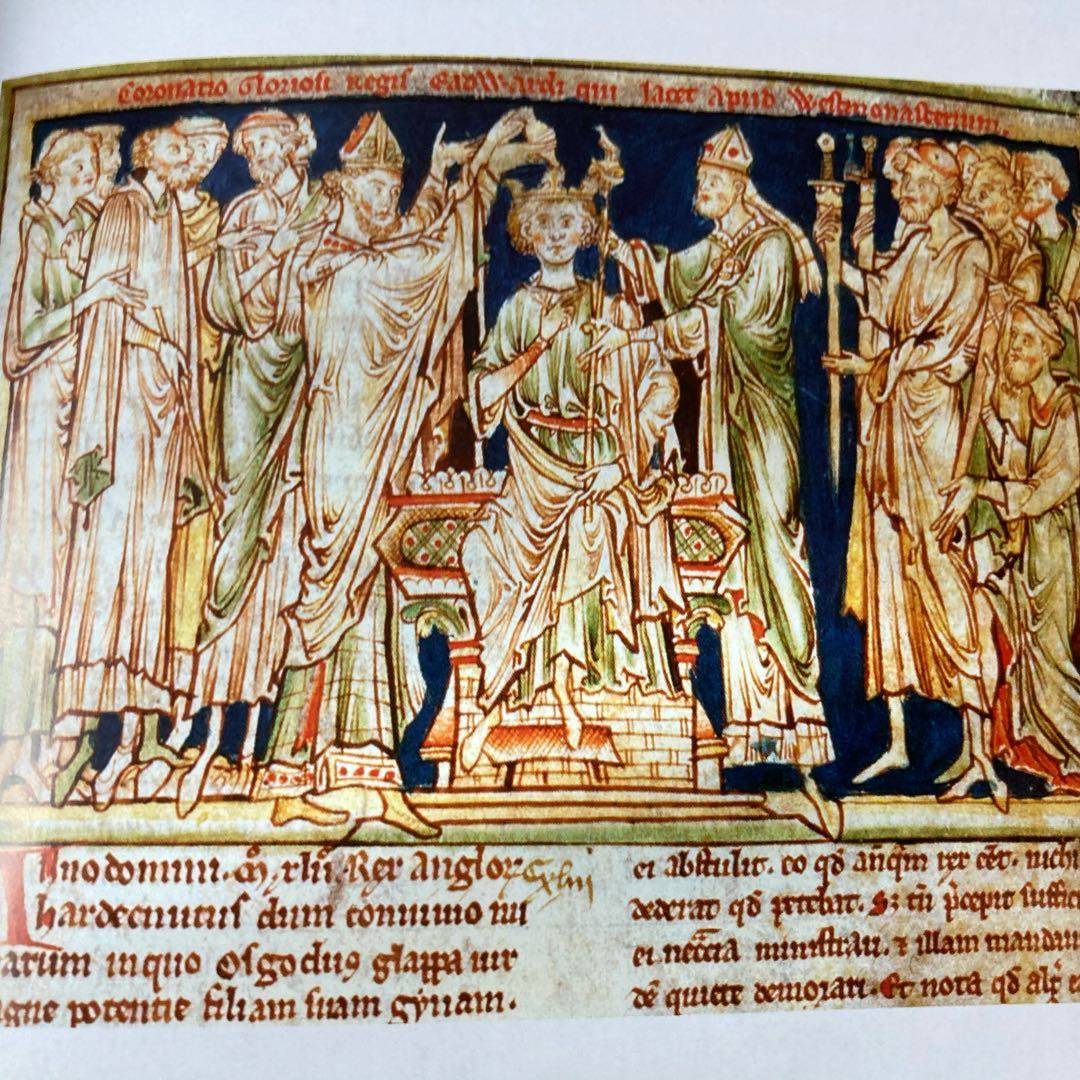 Coronatio Gloriosi Regis Eadwardi qui Jacet Apud Westmonasterium.
Anno domini. M. xlii. Rex Anglor
hardecnutus dum conuiuio nu
arum in quo Osgodus glappa uir
gne potentie filiam suam gyuam.
ei abstulit. eo qd anqm rex eet. nichi
dederat qd petebat. Sz tn pcepit suffici
ei neccia ministrari. & illam mandaui
de quiete demorari. Et nota qd